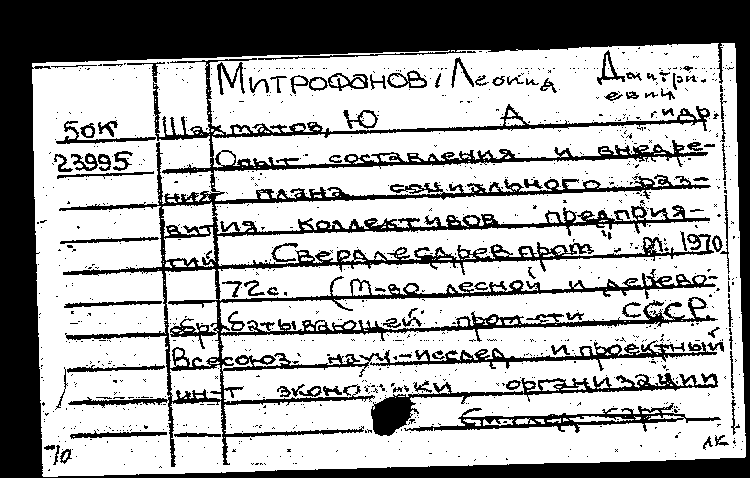 Митрофанов, Леонид Дмитри-
евич
50К Шахматов, Ю А и др.
23995 Опыт составления и внедре-
ния плана социального раз-
вития коллективов предприя-
тий „Свердлеспром". М., 1970
72 с. (М-во лесной и дерево-
обрабатывающей пром-сти СССР.
Всесоюз. науч.-исслед. и проектный
ин-т экономики, организации
См. след. карт.
70 АК